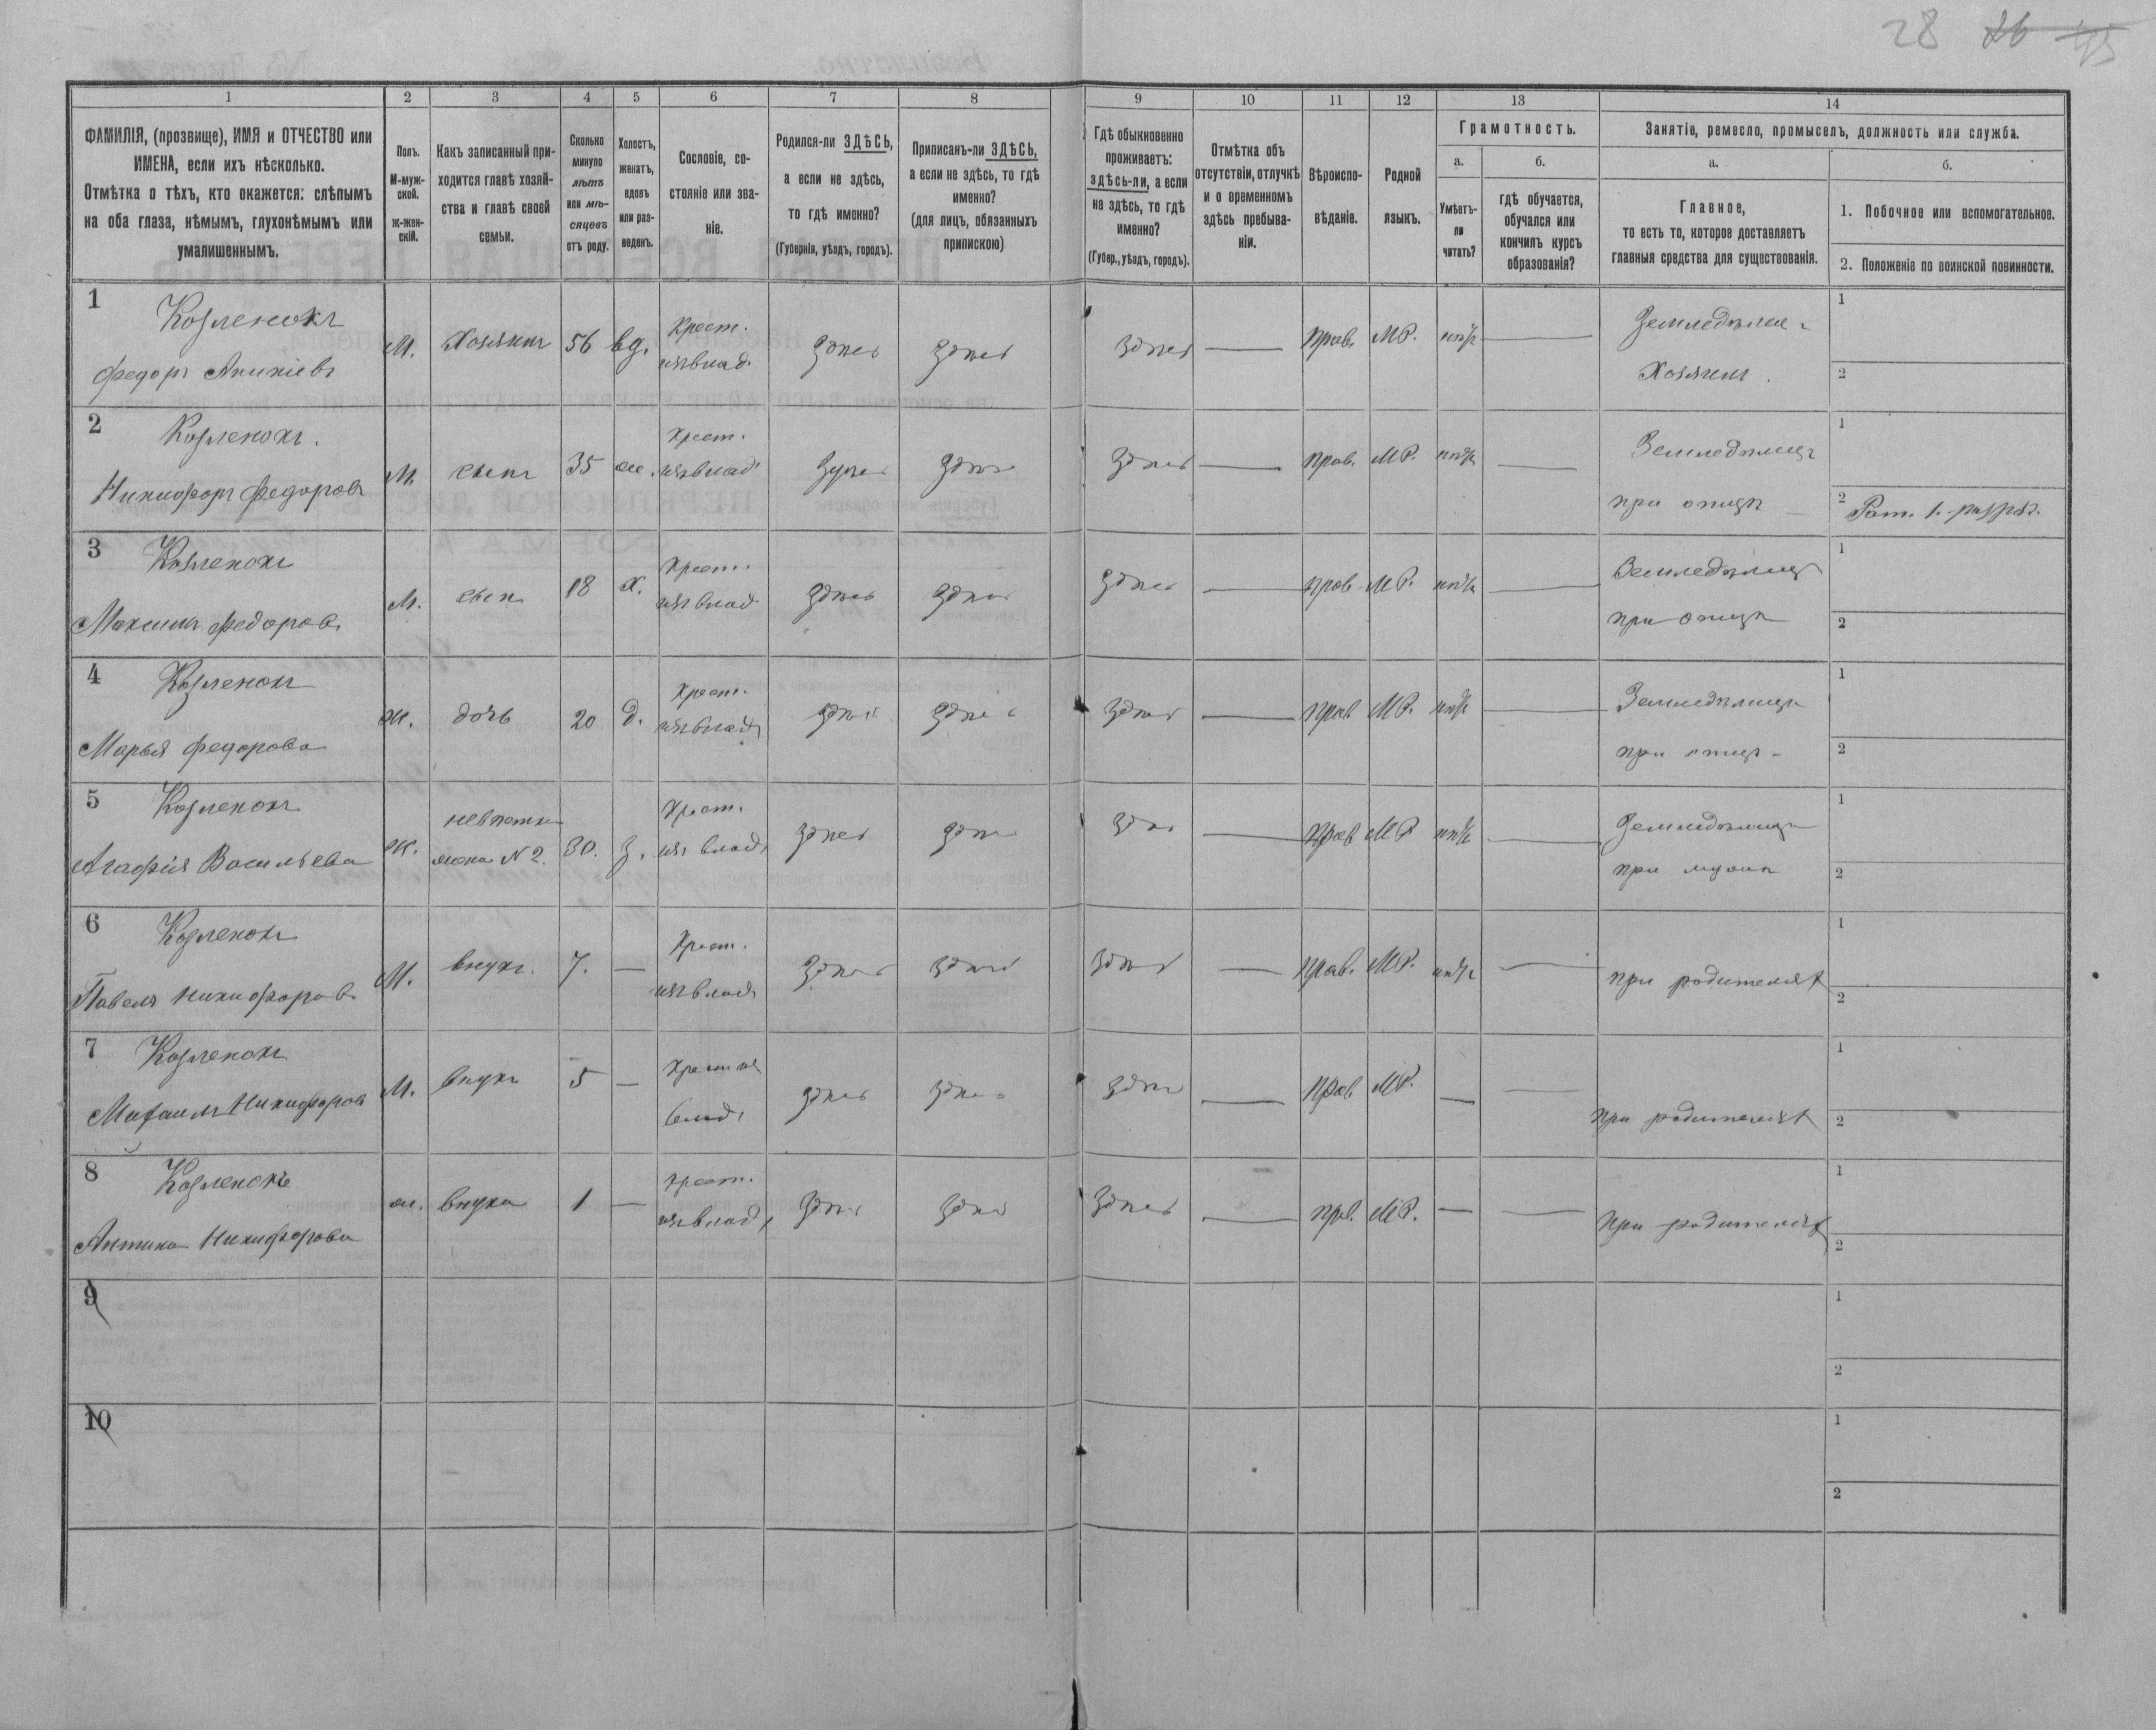 28 26 45
1 2 3 4 5 6 7 8 9 10 11 12 13 14
ФАМИЛІЯ, (прозвище), ИМЯ и ОТЧЕСТВО или
ИМЕНА, если ихъ нѣсколько.
Отмѣтка о тѣхъ, кто окажется: слѣпымъ
на оба глаза, нѣмымъ, глухонѣмымъ или
умалишеннымъ.
Полъ.
М-муж-
ской.
ж-жен-
скій.
Какъ записанный при-
ходится главѣ хозяй-
ства и главѣ своей
семьи.
Сколько
минуло
лѣтъ
или мѣ-
сяцевъ
отъ роду.
Холостъ,
женатъ,
вдовъ
или раз-
веденъ.
Сословіе, со-
стояніе или зва-
ніе.
Родился-ли ЗДѢСЬ,
а если не здѣсь,
то гдѣ именно?
(Губернія, уѣздъ, городъ).
Приписанъ-ли ЗДѢСЬ,
а если не здѣсь, то гдѣ
именно?
(для лицъ, обязанныхъ
припискою)
Гдѣ обыкновенно
проживаетъ:
здѣсь-ли, а если
не здѣсь, то гдѣ
именно?
(Губер., уѣздъ, городъ).
Отмѣтка объ
отсутствіи, отлучкѣ
и о временномъ
здѣсь пребыва-
ніи.
Вѣроиспо-
вѣданіе.
Родной
языкъ.
Грамотность.
а.
Умѣетъ-
ли
читать?
б.
гдѣ обучается,
обучался или
кончилъ курсъ
образованія?
Занятіе, ремесло, промыселъ, должность или служба.
а.
Главное,
то есть то, которое доставляетъ
главныя средства для существованія.
б.
1. Побочное или вспомогательное.
2. Положеніе по воинской повинности.
1 Козленокъ
Федоръ Аникіевъ
М. Хозяинъ 56 вд. Крест. изъ влад. здѣсь здѣсь здѣсь — Прав. М.Р. нѣтъ —
Земледѣлецъ
Хозяинъ.
1
2
2 Козленокъ.
Никифоръ Федоровъ
М. сынъ 35 ж. Крест. изъ влад. здѣсь здѣсь здѣсь — Прав. М.Р. нѣтъ —
Земледѣлецъ
при отцѣ
1
2 Рат. 1. разряд.
3 Козленокъ
Максимъ Федоровъ
М. сынъ 18 х. Крест. изъ влад здѣсь здѣсь здѣсь — прав М.Р. нѣтъ —
Земледѣлецъ
при отцѣ
1
2
4 Козленокъ
Марья Федорова
ж. дочь 20 д. Крест. изъ влад здѣсь здѣсь здѣсь — прав М.Р. нѣтъ —
Земледѣлица
при отцѣ
1
2
5 Козленокъ
Агафія Васильева
ж. невѣстка жена N 2. 30. з. Крест. изъ влад. здѣсь здѣсь здѣсь — Прав М.Р нѣтъ —
Земледѣлица
при мужѣ
1
2
6 Козленокъ
Павелъ Никифоровъ
М. внукъ. 7. — Крест. изъ влад здѣсь здѣсь здѣсь — Прав. М.Р. нѣтъ —
при родителях
1
2
7 Козленокъ
Михаилъ Никифоровъ
М. внукъ 5 — Крест изъ влад. здѣсь здѣсь здѣсь — Прав М.Р. — —
при родителях
1
2
8 Козленокъ
Никифорова
ж. внука 1 — Крест. изъ влад. здѣсь здѣсь здѣсь — пра. М.Р. — —
при родителях
1
2
9
1
2
10
1
2